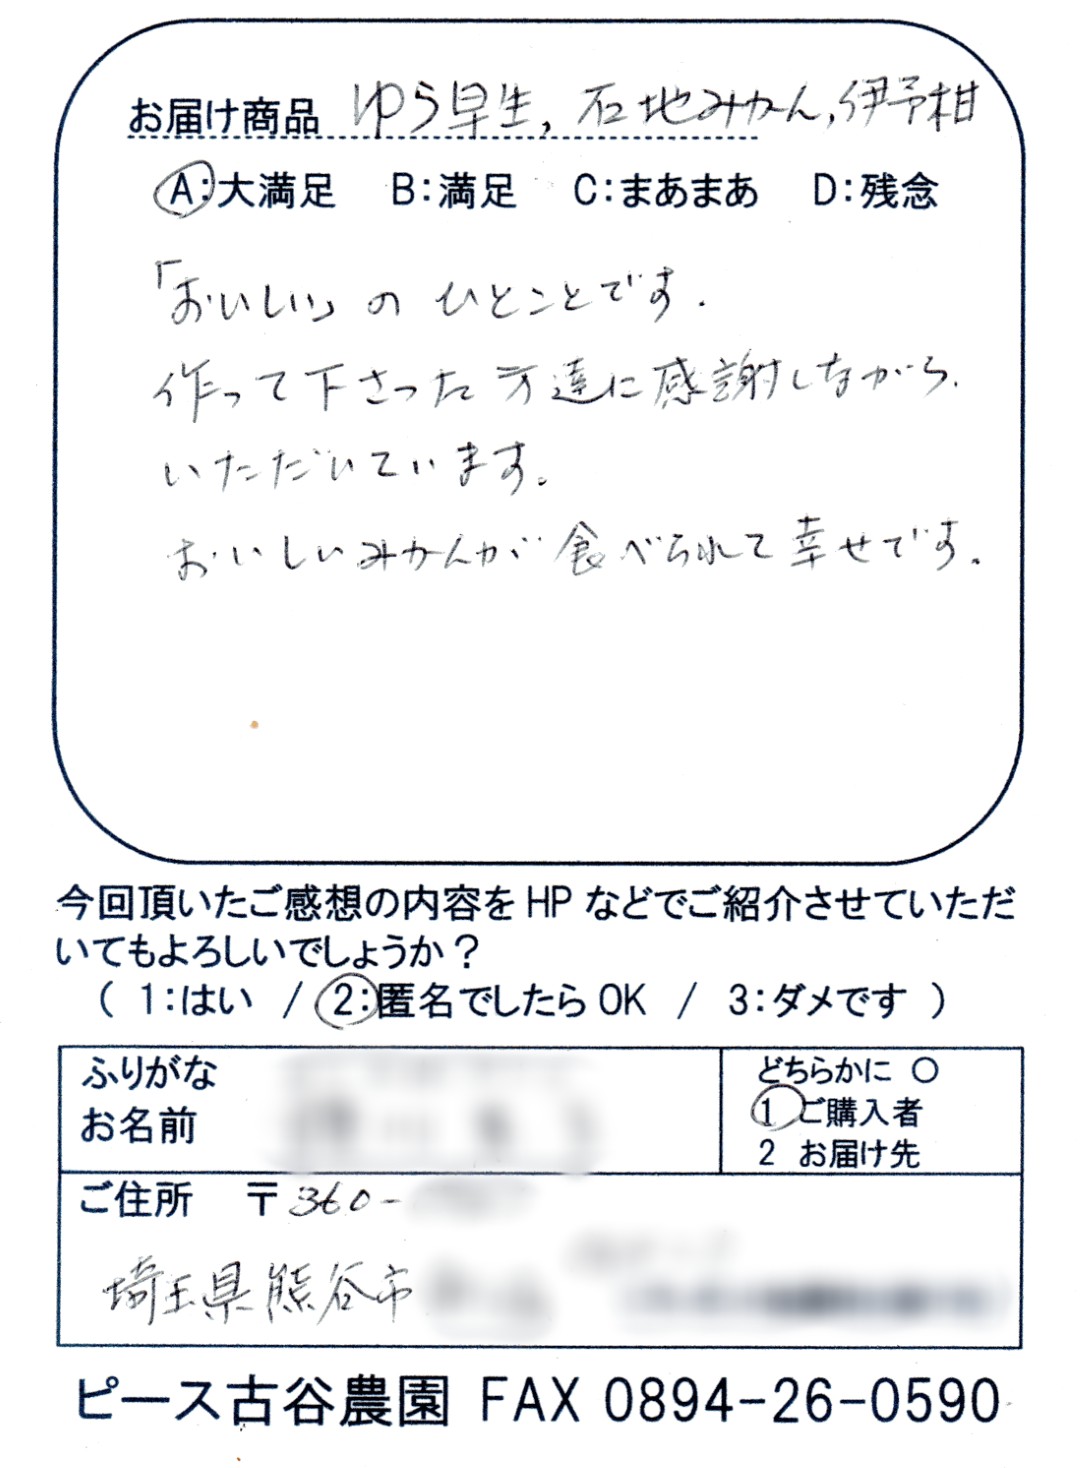 お届け商品 ゆら早生, 石地みかん, 伊予柑
A:大満足 B:満足 C:まあまあ D:残念
「おいしい」の ひとことです.
作って下さった方達に感謝しながら、
いただいています。
おいしいみかんが 食べられて幸せです。
今回頂いたご感想の内容を HP などでご紹介させていただ
いてもよろしいでしょうか？
( 1:はい / 2:匿名でしたら OK / 3:ダメです )
ふりがな
お名前
どちらかに ○
1 ご購入者
2 お届け先
ご住所 〒360-
埼玉県熊谷市
ピース古谷農園 FAX 0894-26-0590